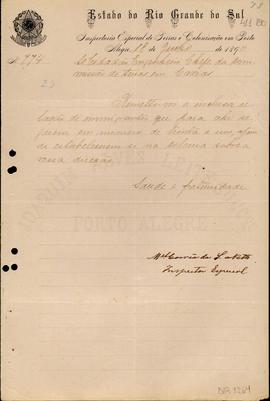 Estado do Rio Grande do Sul
Inspectoria Especial de Terras e Colonisação em Porto
Alegre, de Junho de 189
Nº 277
Ao Cidadão Engenheiro Chefe da Com-
missão de terras em Caxias
2)
Remetto-vos a inclusa re-
lação de immigrantes que para ahi se-
guem em numero de trinta e um, afim
de estabelecerem-se na colonia sob a
vossa direcção.
Saude e fraternidade
PORTO ALEGRE
Mel Correia da S. Netto
Inspector Especial